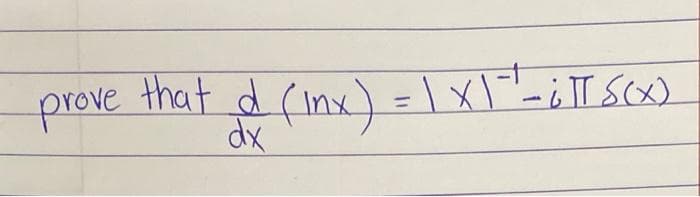 prove that d/dx (lnx) = |x|⁻¹ - iπ δ(x)